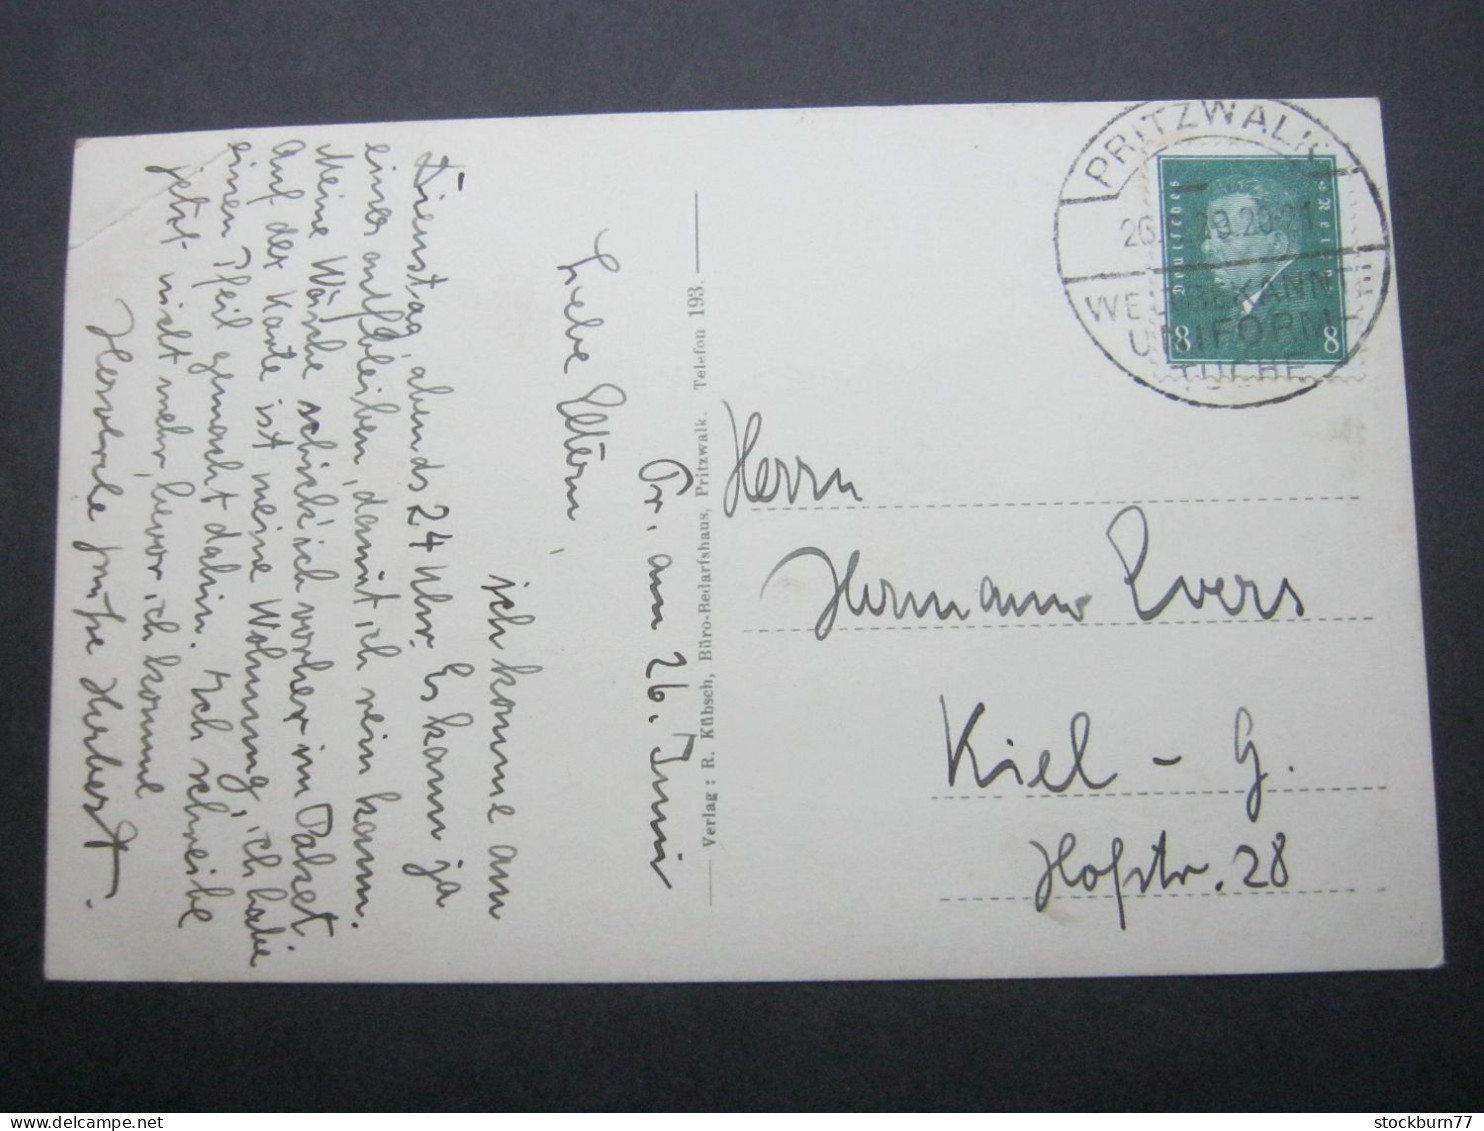 Pr. am 26. Juni
Liebe Eltern,
ich komme am
Dienstag, abends 24 Uhr. Es kann ja
einer aufbleiben, damit ich rein kann.
Meine Wäsche schick' ich vorher im Paket.
Auf der Karte ist meine Wohnung, ich habe
einen Pfeil gemacht dahin. Ich schreibe
jetzt nicht mehr, bevor ich komme
Herbert.
Verlag: R. Kübsch, Büro-Bedarfshaus, Pritzwalk. Telefon 193.
PRITZWALK
26. 29.20-21
WELTBEKANNT
UNIFORM-
TUCHE
Deutsches Reich
8 8
Herrn
Hermann Evers
Kiel - G.
Hofstr. 28
stockburn77